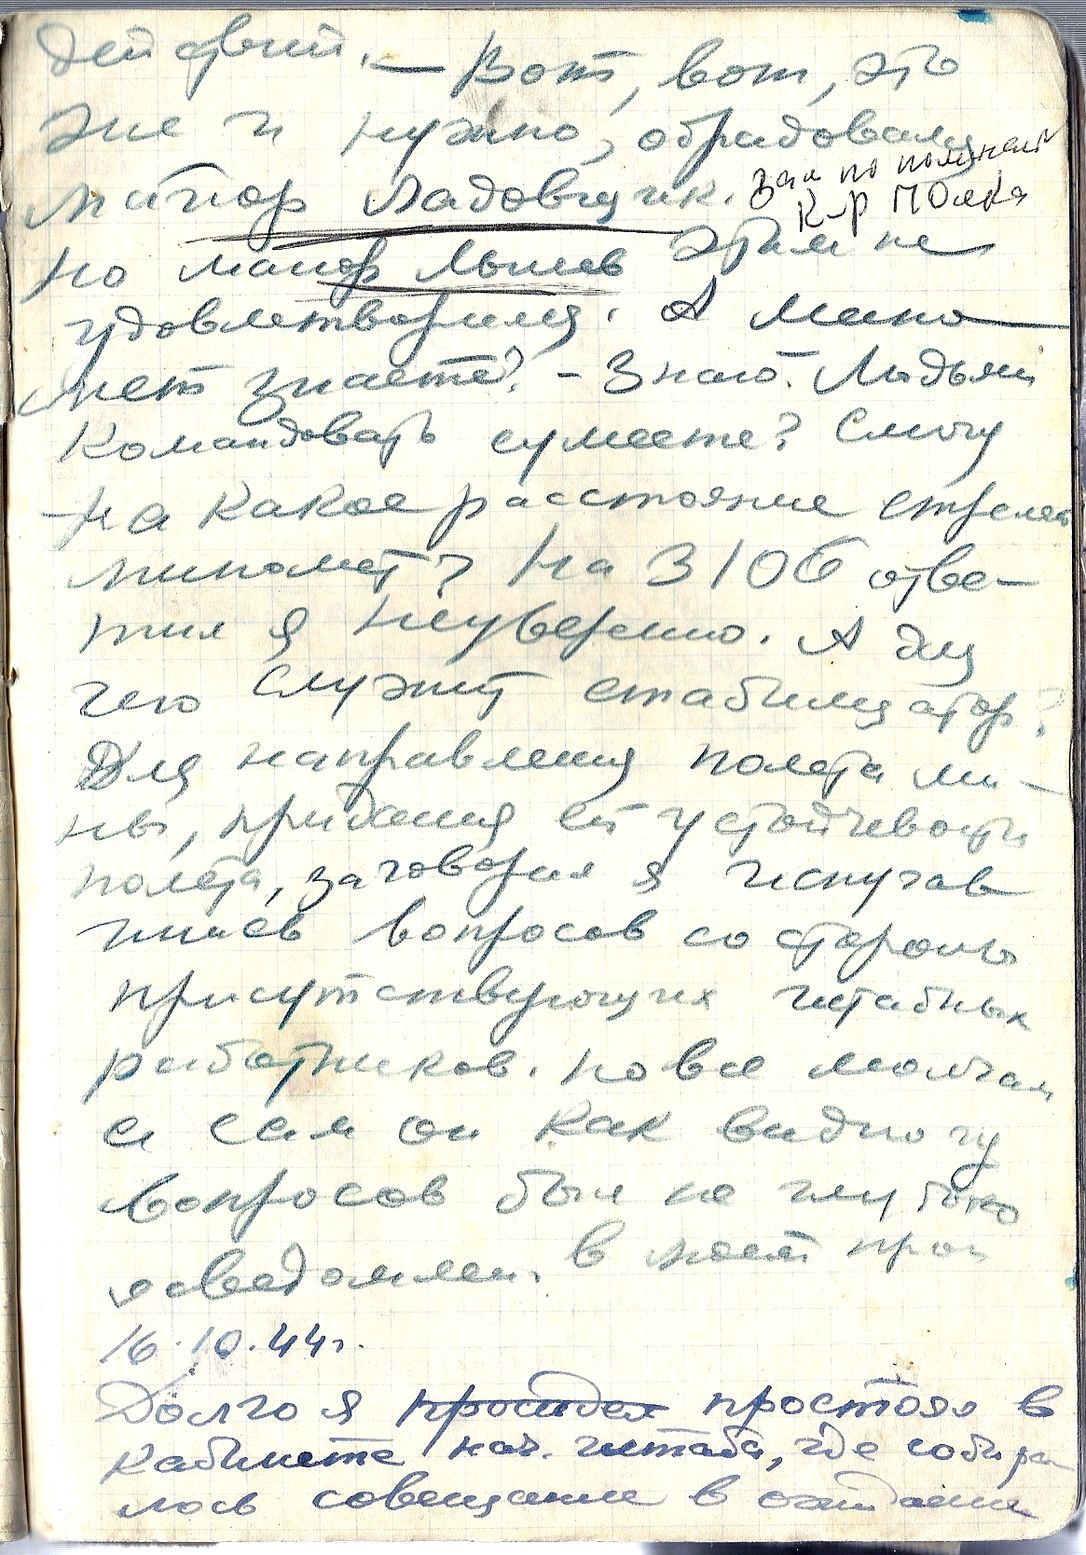 действий. — Вот, вот, это
же и нужно, обрадовался
майор Ладовщик. Зам по полит части
К-р Полка
но майор Лышев этим не
удовлетворился. А мино
мет знаете? - Знаю. Людьми
командовать сумеете? Смогу
На какое расстояние стреляет
миномет? На 3100 отве-
тил я неуверенно. А для
чего служит стабилизатор?
Для направления полета ми-
ны, придания ей устойчивости
полета, заговорил я испугав
шись вопросов со стороны
присутствующих штабных
работников. Но все молчали
а сам он как видно у
вопросов был не глубоко
осведомлен. В моей
16.10.44г.
Долго я простоял в
кабинете нач. штаба, где собира
лось совещание в ожидании